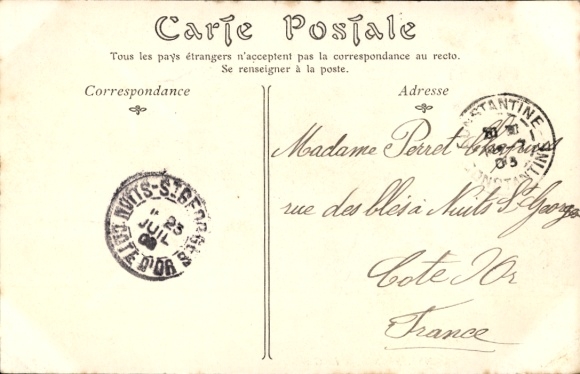 Carte Postale
Tous les pays étrangers n'acceptent pas la correspondance au recto.
Se renseigner à la poste.
Correspondance
Adresse
CONSTANTINE
CONSTANTINE
Madame Perret
rue des blés à Nuits St Georges
Cote d'Or
France
NUITS-ST-GEORGES
23
JUIL
COTE D'OR